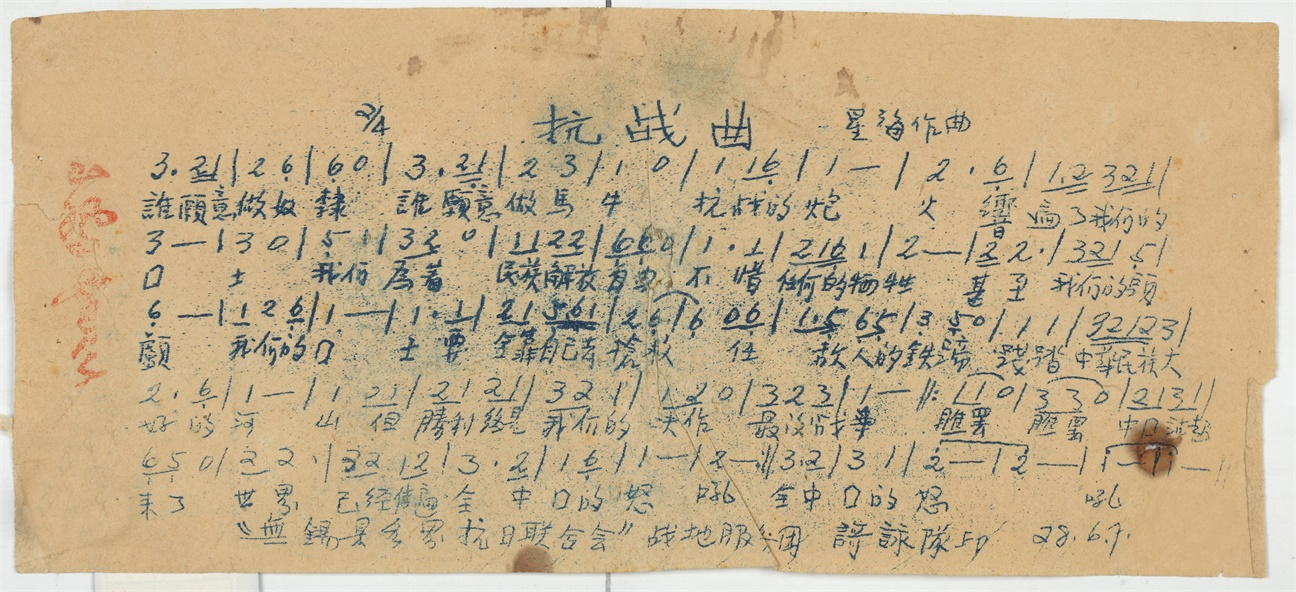 2/4 抗战曲 星海作曲
3. 21 | 2 6 | 6 0 | 3. 21 | 2 3 | 1 0 | 1 16 | 1 — | 2. 6 | 1.2 321 |
誰願意做奴隸 誰願意做馬牛 抗战的炮火 響遍了我们的
3 — | 3 0 | 5 1 | 32 0 | 11 22 | 66 0 | 1. 1 | 216 1 | 2 — | 22. | 321 5 |
口土 我们為著 民族解放 不惜任何的牺牲 甚至我们的頭
6 — | 1 2 6 | 1 — | 1. 1 | 21 561 | 2 6 | 6 06 | 1.5 65 | 3 50 | 1 1 | 32123 |
顱 我们的口土要全靠自己去 敌人的鉄蹄 踐踏中華民族大
2. 6 | 1 — | 1 21 | 21 21 | 32 1 | 12 0 | 323 | 1 — ‖: 110 | 330 | 2131 |
好的河山 但勝利終是我们的 最没战爭 中口
65 0 | 22. | 32 12 | 3. 2 | 16 | 1 — | 2 — :‖ 3.2 | 31 | 2 — | 2 — | 1 — | 1 — ‖
来了 世界已经傳遍全中口的怒吼 全中口的怒吼
《無錫县各界抗日联合会》战地服务团 歌詠隊印 28.6.7.